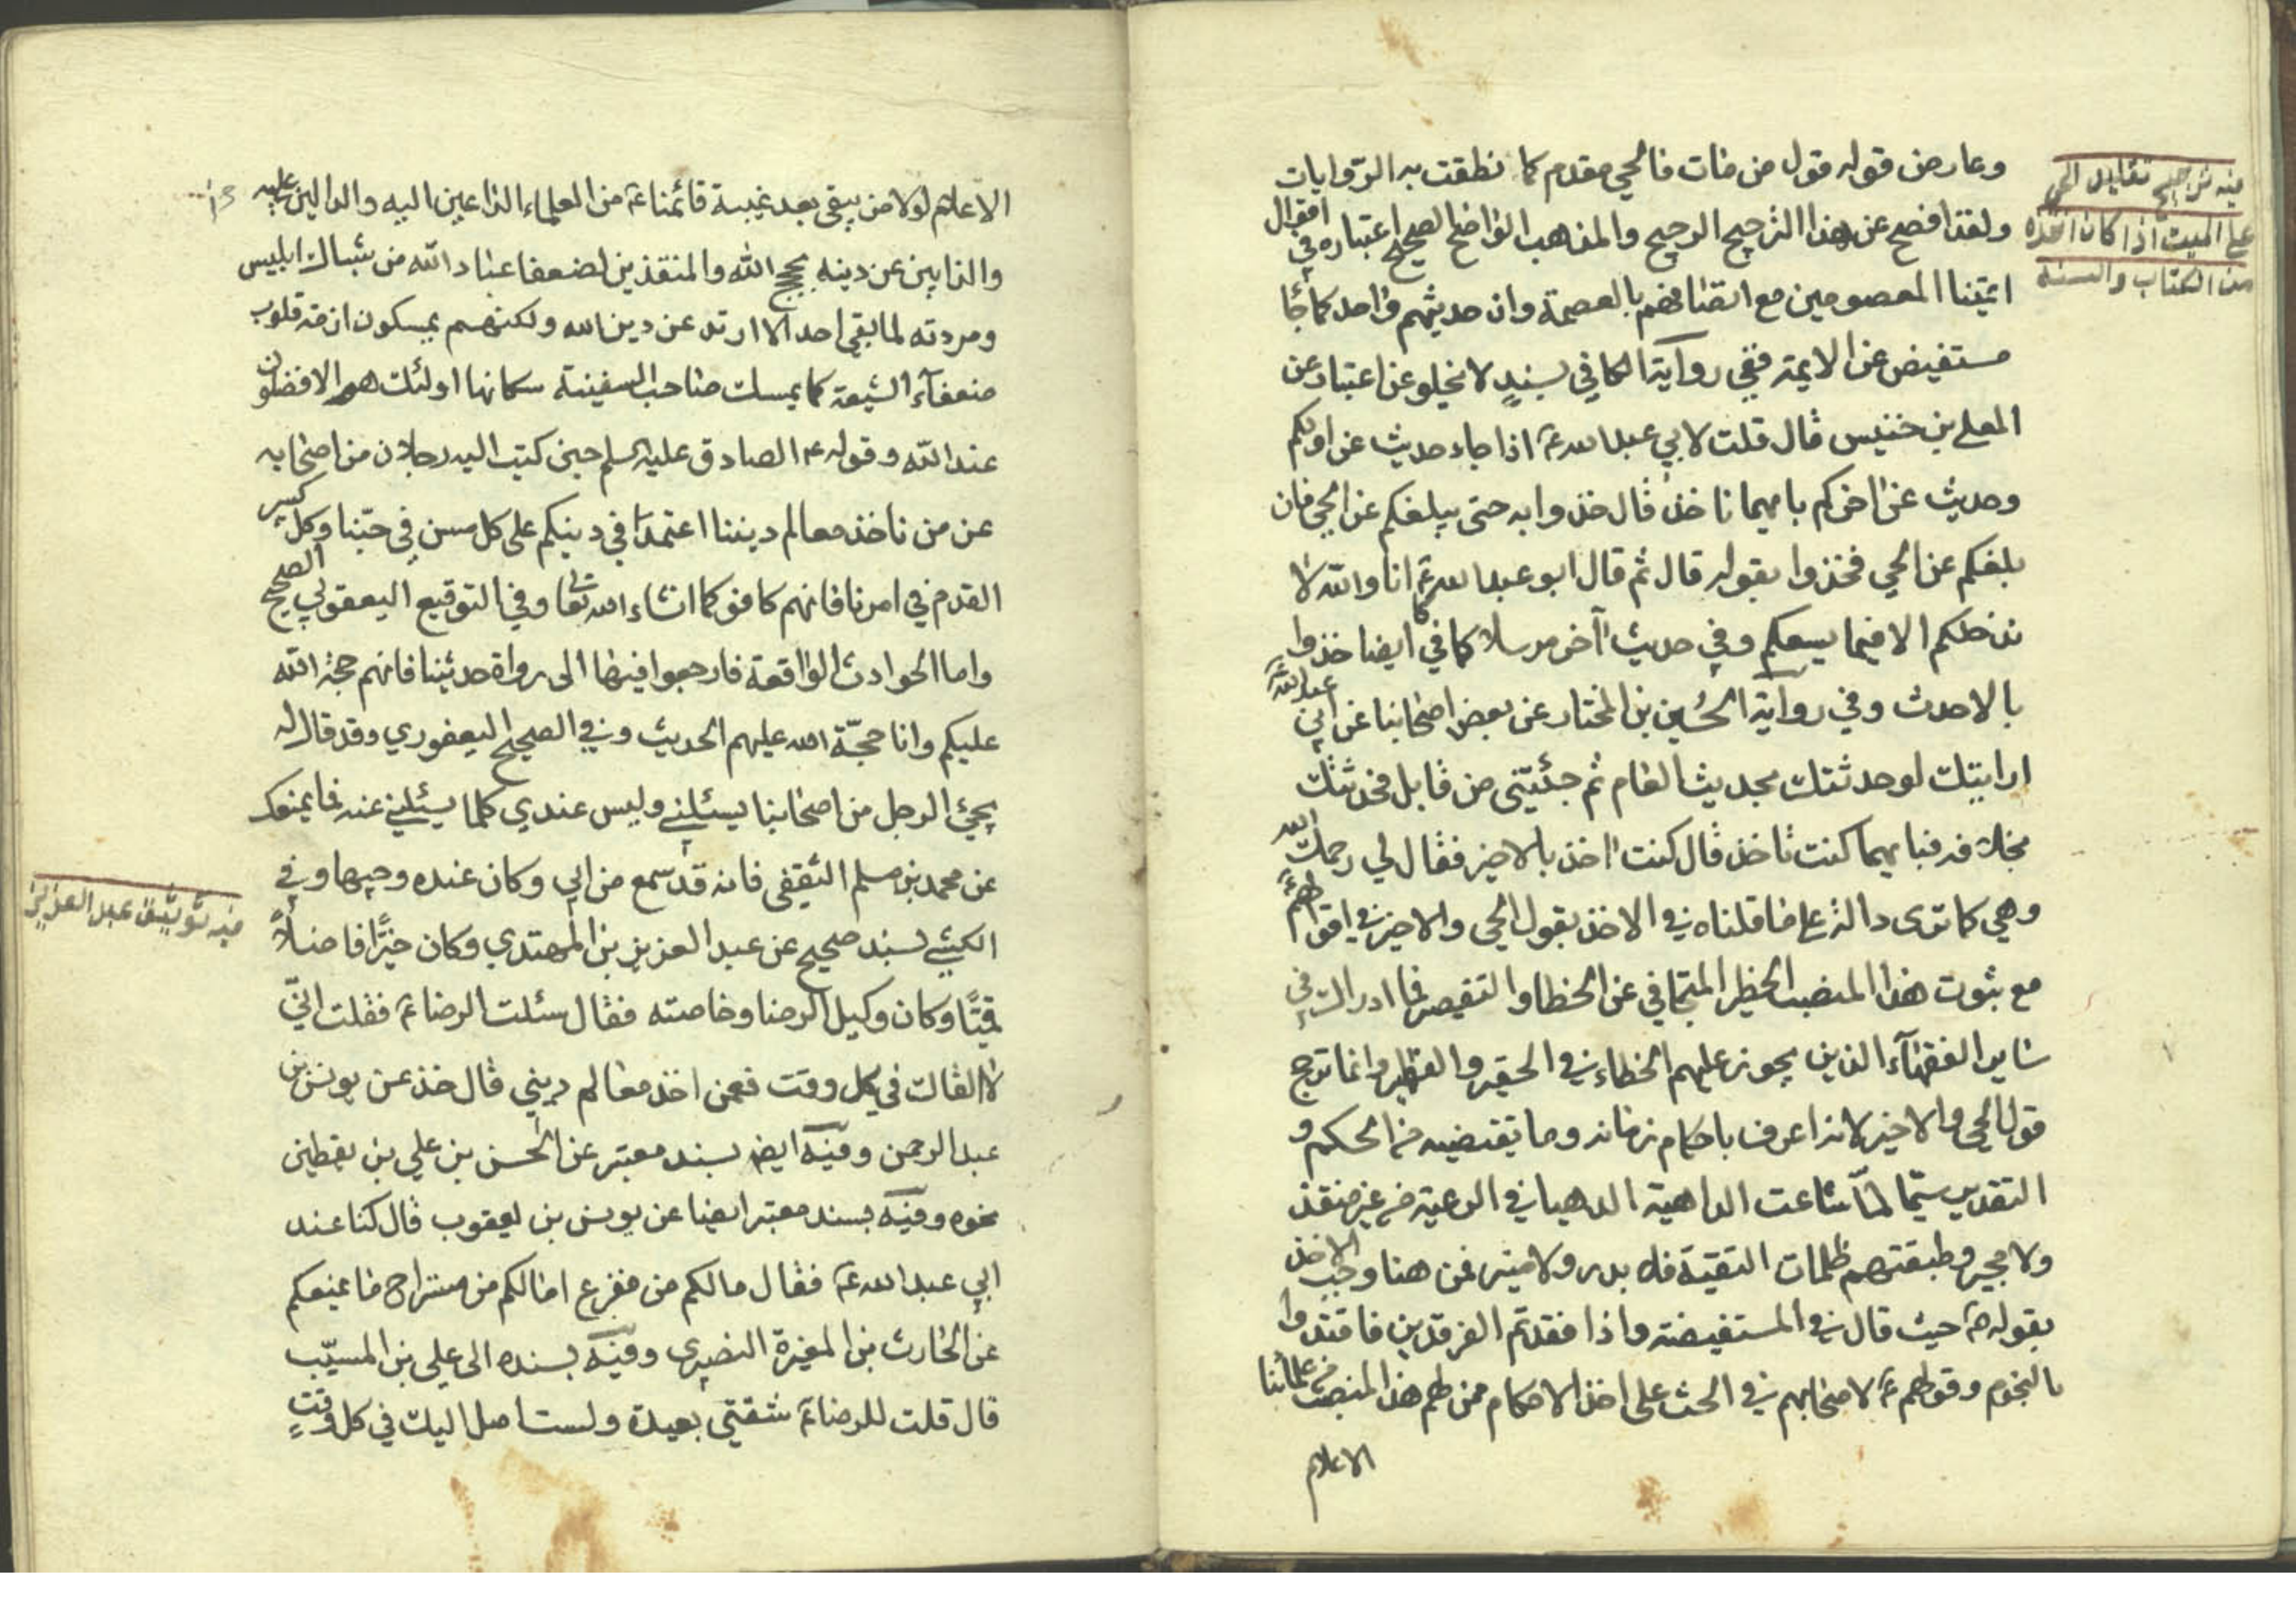 وعارض قوله قول من مات فالحي مقدم كما نطقت به الروايات
ولقد افصح عن هذا الترجيح الرجيح والمذهب الواضح الصحيح اعتباره في اقوال
ائمتنا المعصومين مع اتصافهم بالعصمة وان حديثهم واحد كما جاء
مستفيض عن الايمة ففي رواية الكافي بسندٍ لا يخلو عن اعتبار عن
المعلى بن خنيس قال قلت لابي عبد الله ع اذا جاء حديث عن اولكم
وحديث عن اخركم بايهما ناخذ قال خذوا به حتى يبلغكم عن الحي فان
بلغكم عن الحي فخذوا بقوله قال ثم قال ابو عبد الله ع انا والله لا
ندخلكم الا فيما يسعكم وفي حديث آخر مرسلا كما في كا ايضا خذوا
بالاحدث وفي رواية الحسين بن المختار عن بعض اصحابنا عن ابي عبد الله ع
ارايتك لو حدثتك بحديث العام ثم جئتني من قابل فحدثتك
بخلافه فبايهما كنت تاخذ قال كنت اخذ بالاخير فقال لي رحمك الله
وهي كما ترى دالة على ما قلناه في الاخذ بقول الحي والاخير في اقوالهم
مع ثبوت هذا المنصب الخطر المتجافي عن الخطا والتقصير فما ادراك في
ساير الفقهاء الذين يجوز عليهم الخطاء في الحقير والقطمير وانما ترجح
قول الحي والاخير لانه اعرف باحكام زمانه وما يقتضيه من الحكم و
التقدير سيّما لمّا شاعت الداهية الدهيا في الرعية من غير منقذ
ولا مجير وطبقتهم ظلمات التقية فلا بدر ولا منير فمن هنا وجب الاخذ
بقوله ص حيث قال في المستفيضة واذا فقدتم الفرقدين فاقتدوا
بالنجوم وقولهم ع لاصحابهم في الحث على اخذ الاحكام ممن لهم هذا المنصب من علمائنا
الاعلام
فيه ترجيح تقليد الحي
على الميت اذا كان اخذه
من الكتاب والسنة
الاعلام لولا من يبقى بعد غيبة قائمنا ع من العلماء الداعين اليه والدالين عليه
والذابين عن دينه بحجج الله والمنقذين لضعفا عباد الله من شباك ابليس
ومردته لما بقي احد الا ارتد عن دين الله ولكنهم يمسكون ازمة قلوب
ضعفآء الشيعة كما يمسك صاحب السفينة سكانها اولئك هم الافضلون
عند الله وقوله ع الصادق عليه السلم حين كتب اليه رجلان من اصحابه
عن من ناخذ معالم ديننا اعتمدا في دينكم على كل مسن في حبّنا وكل كبير
القدم في امرنا فانهم كافوكما انشاء الله تعا وفي التوقيع اليعقوبي الصحيح
واما الحوادث الواقعة فارجعوا فيها الى رواة حديثنا فانهم حجة الله
عليكم وانا حجّة الله عليهم الحديث وفي الصحيح اليعفوري وقد قال له
يجيئ الرجل من اصحابنا يسئلني وليس عندي كلما يسئلني عنه فما يمنعك
عن محمد بن مسلم الثقفي فانه قد سمع من ابي وكان عنده وجيها وفي
الكشي بسند صحيح عن عبد العزيز بن المهتدي وكان خيّرًا فاضلاً
قميًّا وكان وكيل الرضا وخاصته فقال سئلت الرضا ع فقلت انّي
لا القاك في كل وقت فعمن اخذ معالم ديني قال خذ عن يونس بن
عبد الرحمن وفيه ايض بسند معتبر عن الحسن بن علي بن يقطين
نحوه وفيه بسند معتبر ايضا عن يونس بن يعقوب قال كنا عند
ابي عبد الله ع فقال ما لكم من مفزع اما لكم من مستراح ما يمنعكم
عن الحارث بن المغيرة النصيري وفيه بسنده الى علي بن المسيّب
قال قلت للرضا ع شقتي بعيدة ولست اصل اليك في كل وقتٍ
فيه توثيق عبد العزيز